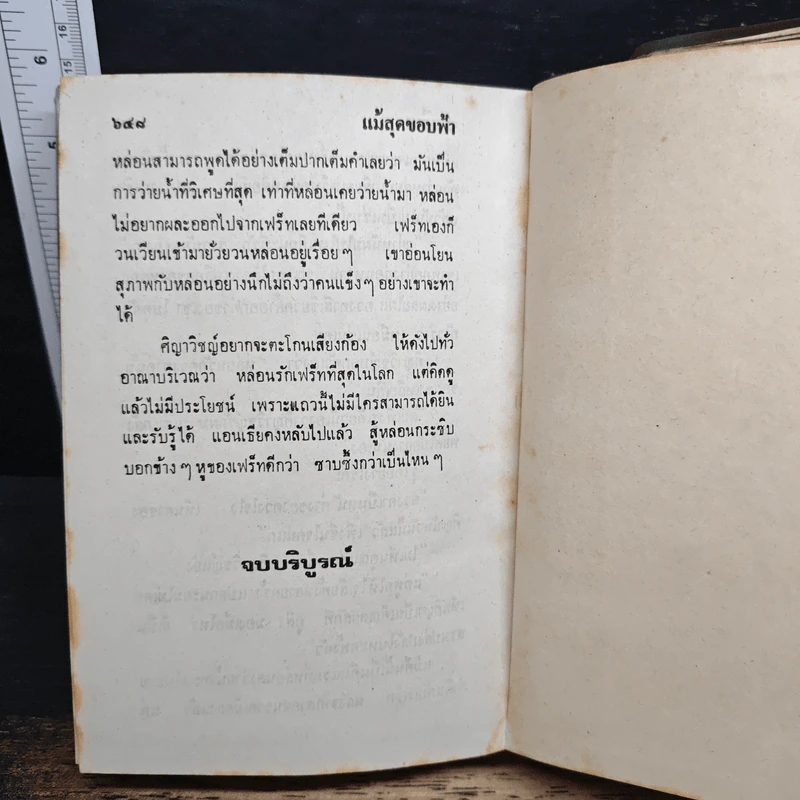 ๖๔๘ แม้สุดขอบฟ้า
หล่อนสามารถพูดได้อย่างเต็มปากเต็มคำเลยว่า มันเป็น
การว่ายน้ำที่วิเศษที่สุด เท่าที่หล่อนเคยว่ายน้ำมา หล่อน
ไม่อยากผละออกไปจากเฟร็ทเลยทีเดียว เฟร็ทเองก็
วนเวียนเข้ามายั่วยวนหล่อนอยู่เรื่อย ๆ เขาอ่อนโยน
สุภาพกับหล่อนอย่างนึกไม่ถึงว่าคนแข็ง ๆ อย่างเขาจะทำ
ได้
ศิญาวิชญ์อยากจะตะโกนเสียงก้อง ให้ดังไปทั่ว
อาณาบริเวณว่า หล่อนรักเฟร็ทที่สุดในโลก แต่คิดดู
แล้วไม่มีประโยชน์ เพราะแถวนี้ไม่มีใครสามารถได้ยิน
และรับรู้ได้ แอนเธียคงหลับไปแล้ว สู้หล่อนกระซิบ
บอกข้าง ๆ หูของเฟร็ทดีกว่า ซาบซึ้งกว่าเป็นไหน ๆ
จบบริบูรณ์
6
5
16
15